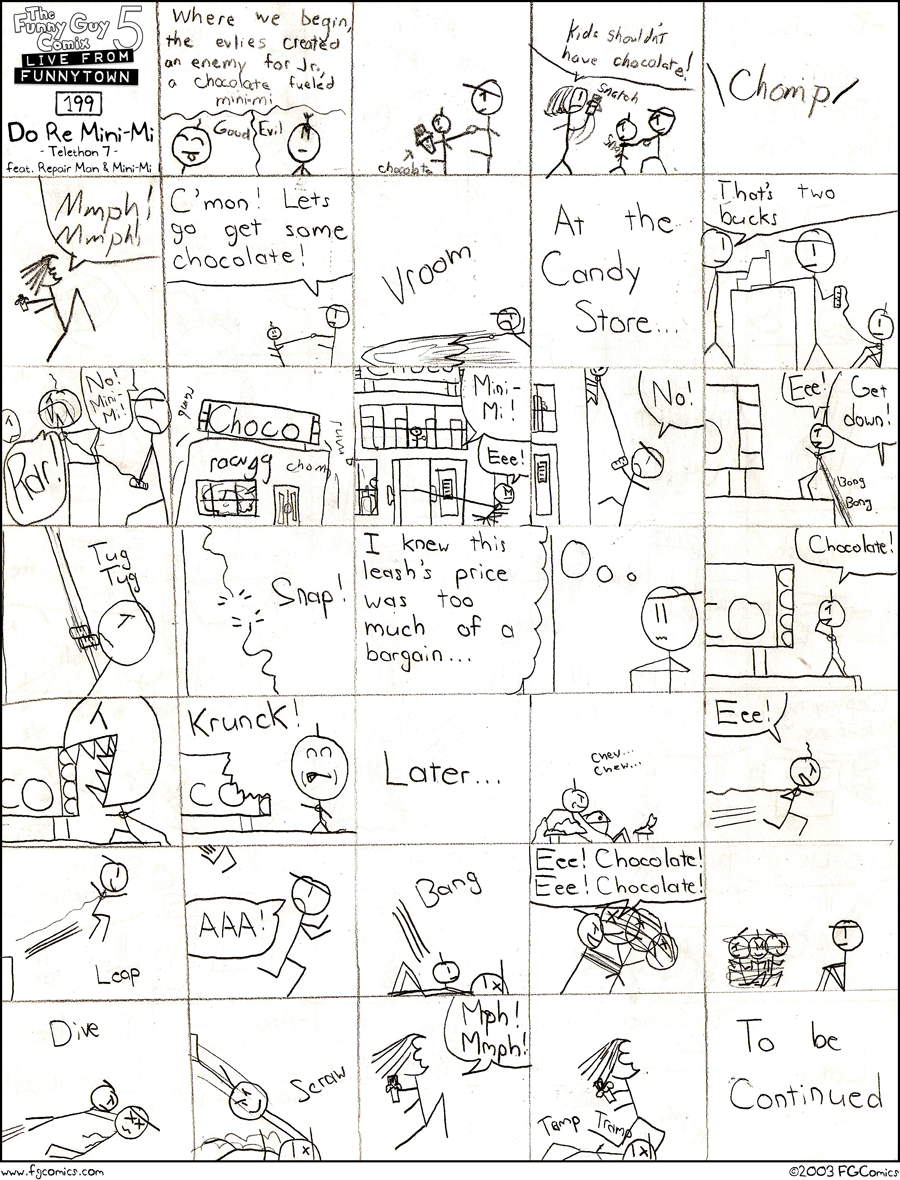 The
Funny Guy
Comix 5
LIVE FROM
FUNNYTOWN
199
Do Re Mini-Mi
- Telethon 7 -
feat. Repair Man & Mini-Mi
Where we begin,
the evlies created
an enemy for Jr,
a chocolate fueled
mini-mi
Good Evil
chocolate
Kids shouldn't
have chocolate!
Snatch
Chomp
Mmph!
Mmph!
C'mon! Lets
go get some
chocolate!
Vroom
At the
Candy
Store...
That's two
bucks
No!
Mini-
Mi!
Rar!
Choco
chomp
Choco
Mini-
Mi!
Eee!
No!
Eee!
Get
down!
Bong
Bong
Tug
Tug
Snap!
I knew this
leash's price
was too
much of a
bargain...
Chocolate!
CO
CO
Krunck!
CO
Later...
Chew...
Chew...
Eee!
Leap
AAA!
Bang
Eee! Chocolate!
Eee! Chocolate!
Dive
Scraw
Mph!
Mmph!
Tamp Tramp
To be
Continued
www.fgcomics.com
©2003 FGComics